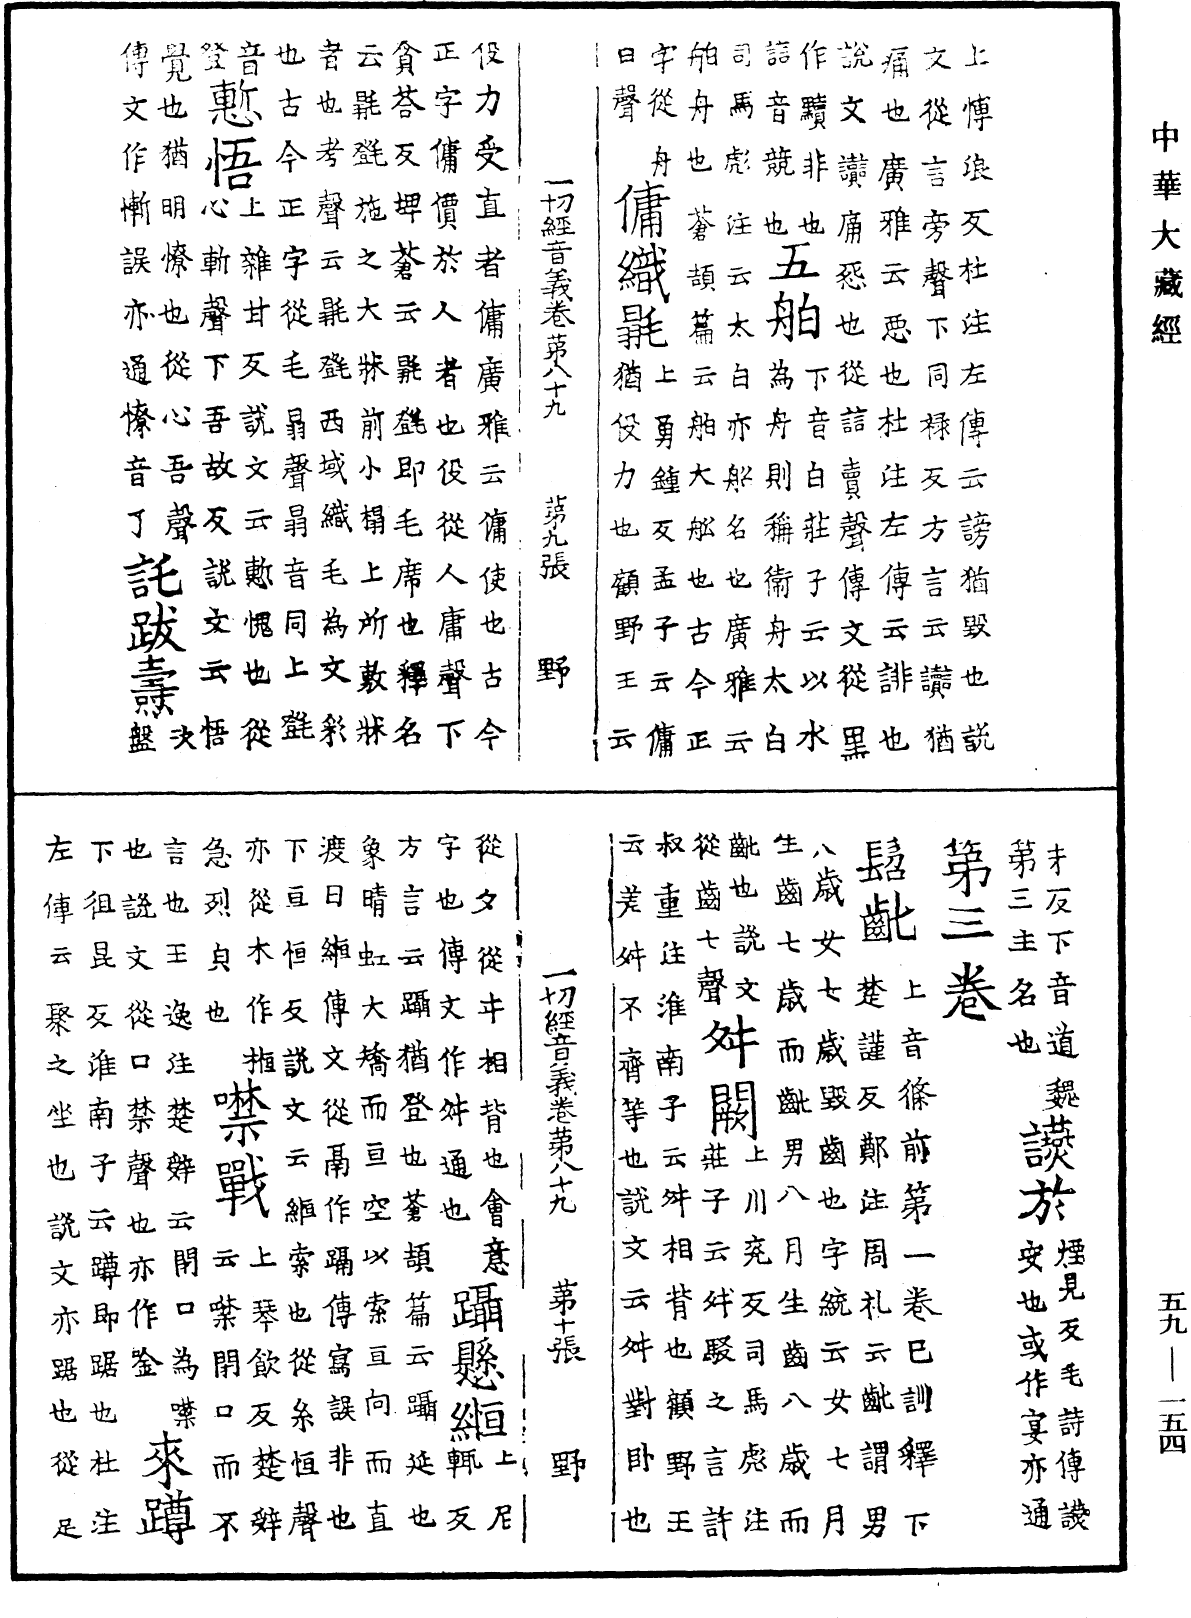 中華大藏經
上慱浪反杜注左傳云謗猶毀也説
文從言旁聲下同祿反方言云讟猶
痛也廣雅云惡也杜注左傳云誹也
説文讟痛怨也從誩賣聲傳文從黑
作黷非也五舶下音白莊子云以水
誩音競也為舟則稱衛舟太白
司馬彪注云太白亦舩名也廣雅云
舶舟也蒼頡篇云舶大舩也古今正
字從舟
白聲傭織㲲上勇鍾反孟子云傭
猶役力也顧野王云
一切經音義卷第八十九 第九張 野
役力受直者傭廣雅云傭使也古今
正字傭價於人者也役從人庸聲下
貪荅反埤蒼云㲲㲪即毛席也釋名
云㲲㲪施之大牀前小榻上所敷牀
者也考聲云㲲㲪西域織毛為文彩
也古今正字從毛㬱聲㬱音同上㲪
音登慙悟上雜甘反説文云慙愧也從
心斬聲下吾故反説文云悟
覺也猶明憭也從心吾聲
傳文作慚誤亦通憭音了託跋燾盤決
才反下音道魏
第三主名也讌於煙見反毛詩傳讌
安也或作宴亦通
第三卷
髫齔上音條前第一卷已訓釋下
楚謹反鄭注周礼云齔謂男
八歲女七歲毀齒也字統云女七月
生齒七歲而齔男八月生齒八歲而
齔也説文
從齒七聲舛闕上川兖反司馬彪注
莊子云舛駮之言許
叔重注淮南子云舛相背也顧野王
云差舛不齊等也説文云舛對卧也
一切經音義卷第八十九 第十張 野
從夕從㐄相背也會意躡懸縆上尼
字也傳文作舛通也輒反
方言云躡猶登也蒼頡篇云躡延也
象晴虹大矯而亘空以索亘向而直
渡曰縆傳文從鬲作䠣傳寫誤非也
下亘恒反説文云縆索也從糸恒聲
亦從木作搄
急烈貞也噤戰上琴飲反楚辭
云噤閉口而不
言也王逸注楚辭云閉口為噤
也説文從口禁聲也亦作唫來蹲
下徂昆反淮南子云蹲即踞也杜注
左傳云聚之坐也説文亦踞也從足
五九—一五四